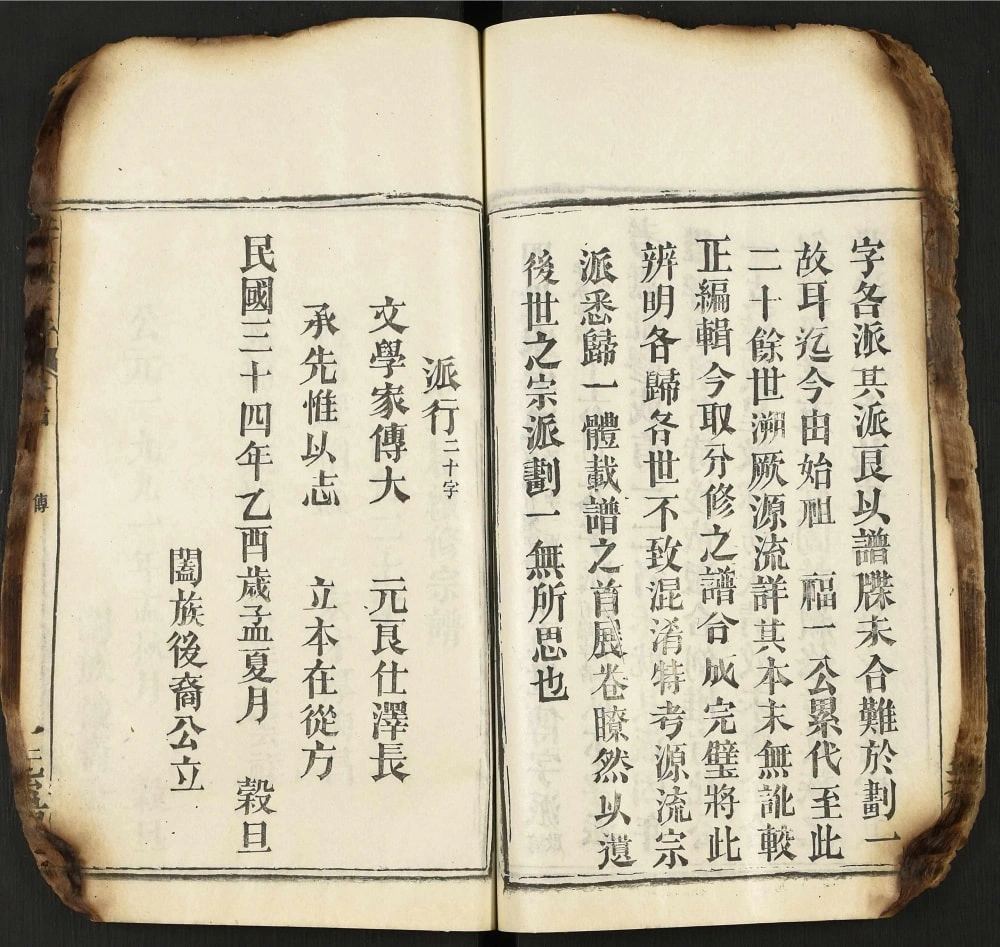 字各派其派艮以譜牒未合難於劃一
故耳迄今由始祖 福一 公累代至此
二十餘世溯厥源流詳其本末無訛較
正編輯今取分修之譜合成完璧將此
辨明各歸各世不致混淆特考源流宗
派悉歸一體載譜之首展卷瞭然以遺
後世之宗派劃一無所思也
派行二十字
文學家傳大 元艮仕澤長
承先惟以志 立本在從方
民國三十四年乙酉歲孟夏月 穀旦
闔族後裔公立
傳